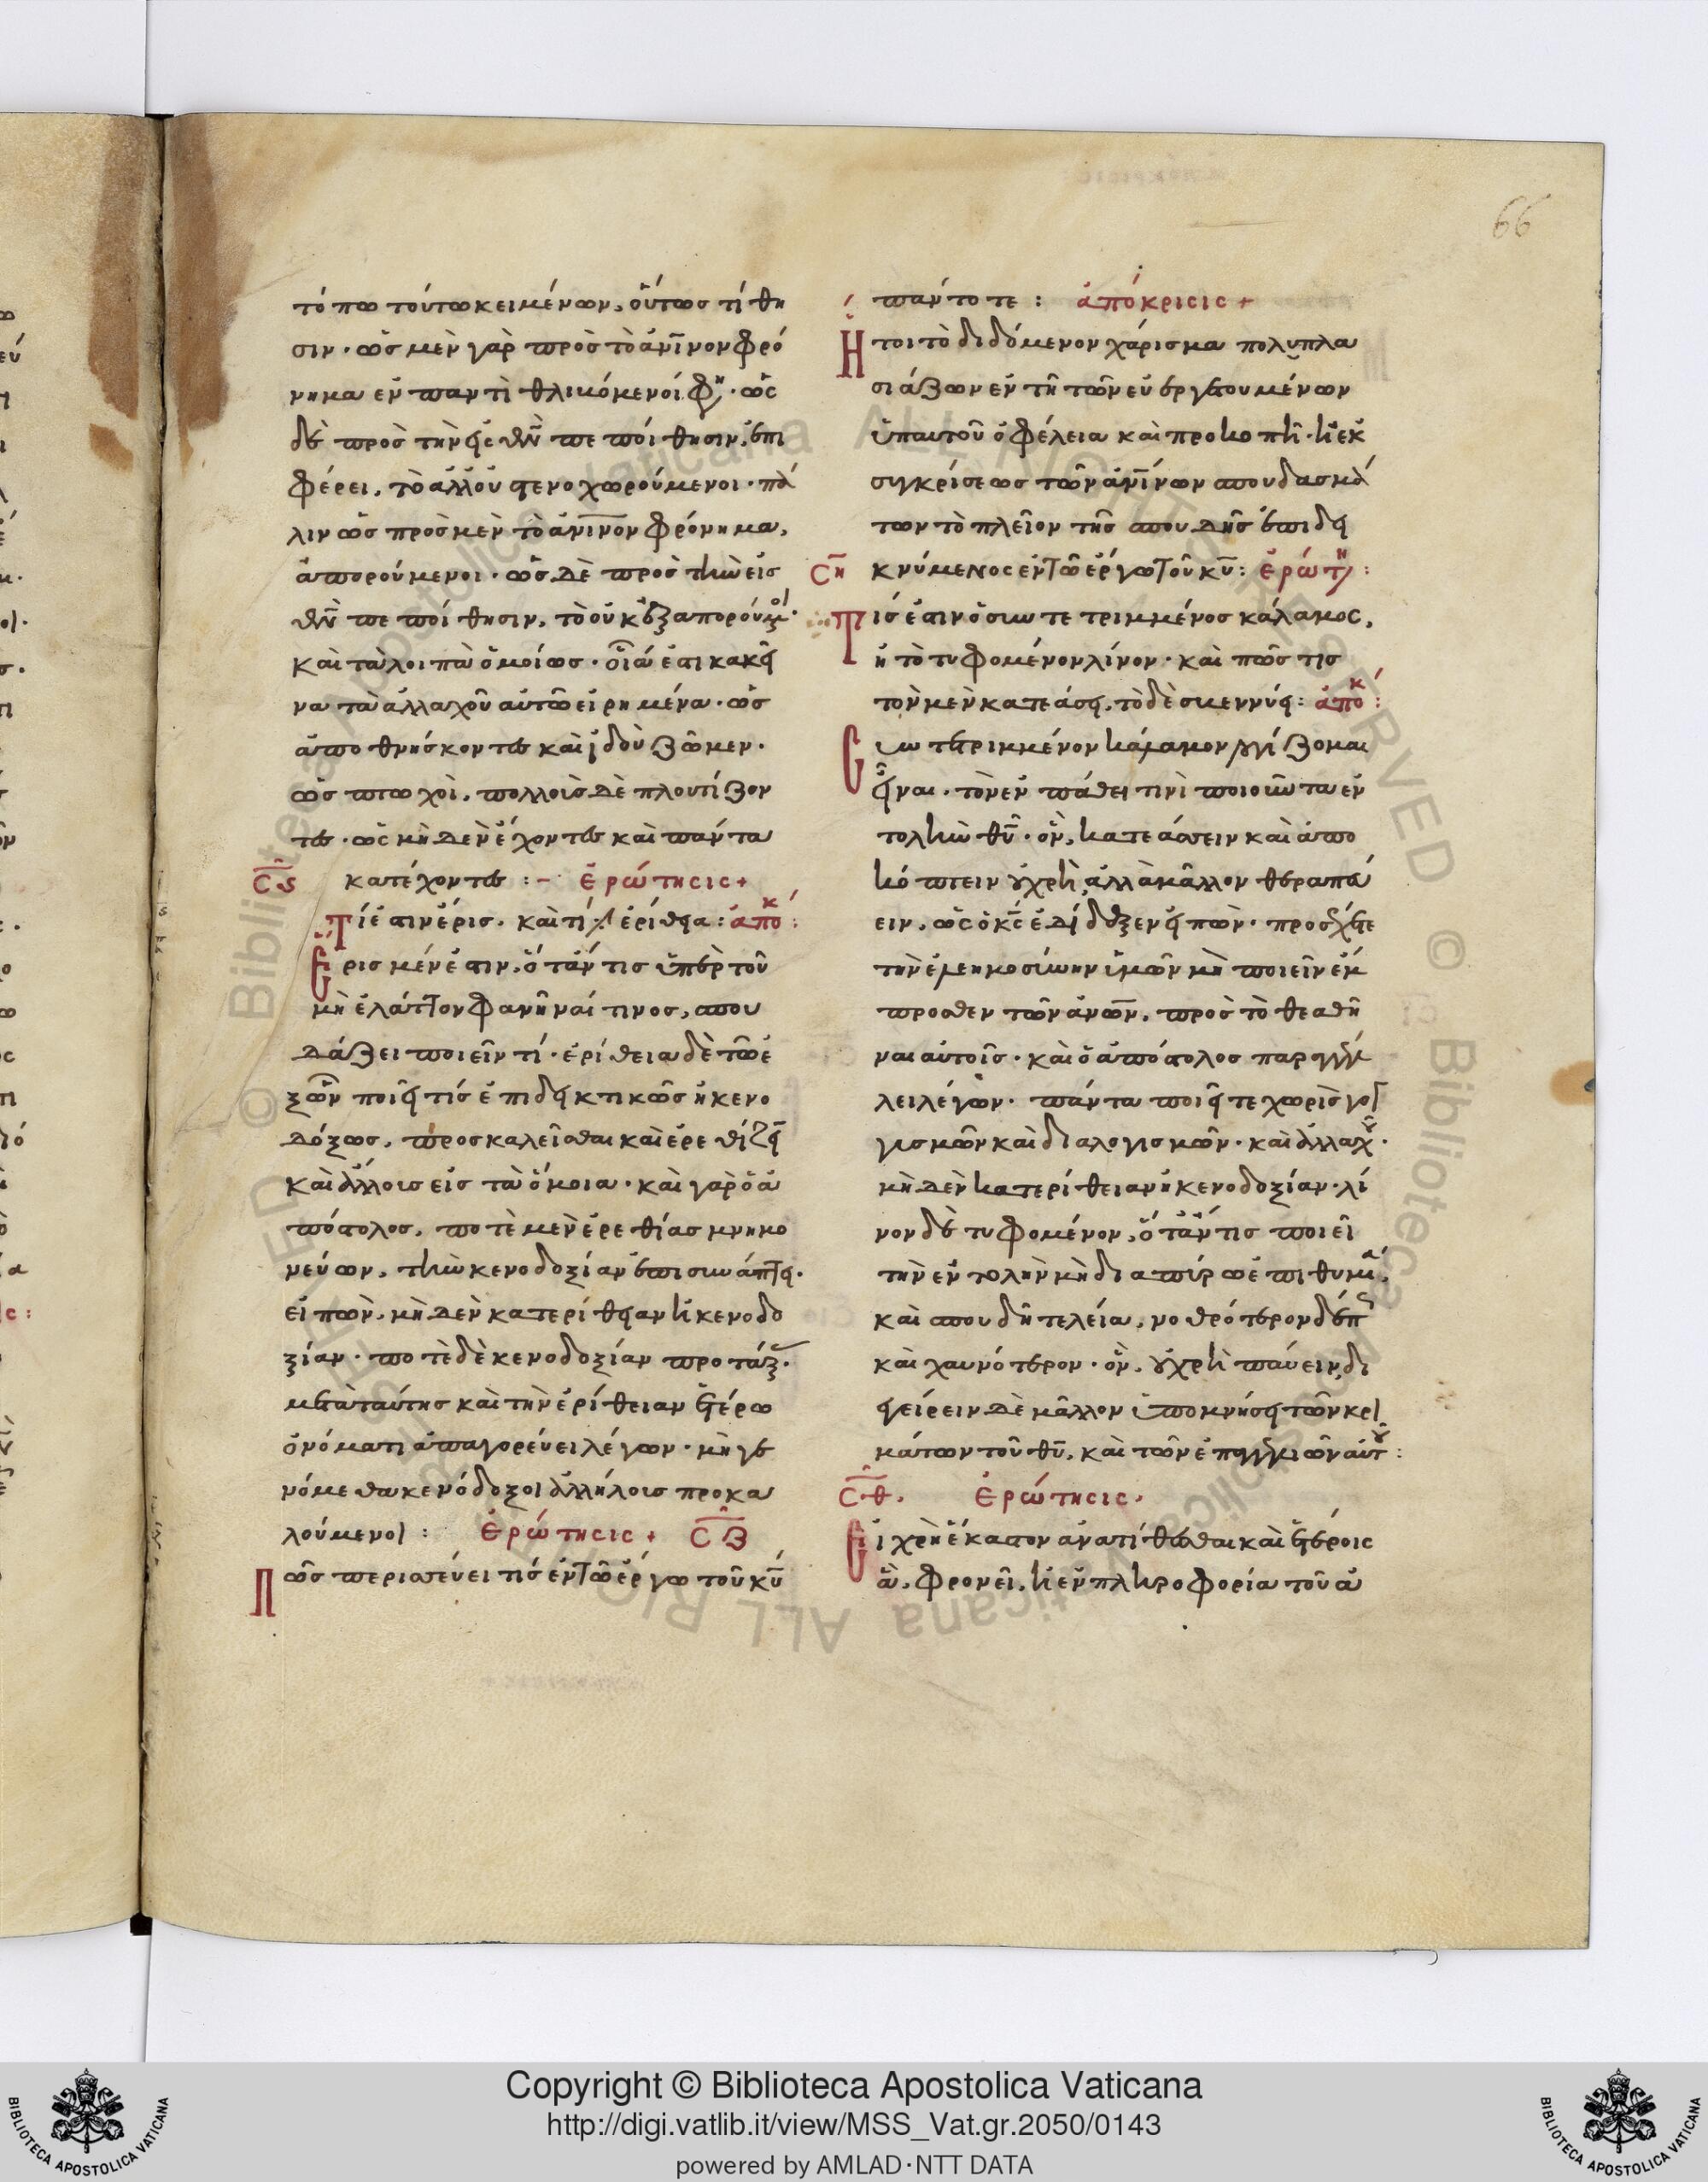 66
τόπω τούτω κειμένων, οὕτως τίθη
σιν· ὡς μὲν γὰρ πρὸς τὸ ἀν̅ι̅νον φρό
νημα ἐν παντὶ θλιβόμενοί φη· ὡς
δὲ πρὸς τὴν εἰς θν̅ πεποίθησιν, ἐπι
φέρει, τὸ ἀλλ' οὐ στενοχωρούμενοι· πά
λιν ὡς πρὸς μὲν τὸ ἀν̅ι̅νον φρόνημα,
ἀπορούμενοι· ὡς δὲ πρὸς τὴν εἰς
θν̅ πεποίθησιν, τὸ οὐκ ἐξαπορούμ̅οι·
καὶ τὰ λοιπὰ ὁμοίως· οἷά ἐστι κακεῖ
να τὰ ἀλλαχοῦ αὐτῶ εἰρημένα· ὡς
ἀποθνήσκοντες καὶ ἰδοὺ ζῶμεν·
ὡς πτωχοὶ, πολλοὺς δὲ πλουτίζον
τες· ὡς μηδὲν ἔχοντες καὶ πάντα
C̅ς̅ κατέχοντες :– ἐρώτησις +
Τί ἐστιν ἔρις. καὶ τί ἐρίθεια: ἀποκ:
Ἔρις μέν ἐστιν, ὅτάν τις ὑπὲρ τοῦ
μὴ ἐλάττον φανῆναί τινος, σπου
δάζει ποιεῖν τί· ἐρίθεια δὲ τῶ ἐ
ξὸν ποιεῖ τίς ἐπιδεικτικῶς ἢ κενο
δόξως, προσκαλεῖσθαι καὶ ἐρεθίζει
καὶ ἄλλους εἰς τὰ ὅμοια· καὶ γὰρ ὁ ἀ
πόστολος, ποτὲ μὲν ἐρεθίας μνημο
νεύων, τὴν κενοδοξίαν ἐπισυνάπτει·
εἰπὼν, μηδὲν κατ' ἐρίθειαν ἢ κενοδο
ξίαν· ποτὲ δὲ κενοδοξίαν προτάξ·
μετὰ ταύτης καὶ τὴν ἐρίθειαν ἑτέρω
ὀνόματι ἀπαγορεύει λέγων· μὴ γε
νόμεθα κενόδοξοι ἀλλήλους προκα
λούμενοι : ἐρώτησις + C̅Ζ̅
Πῶς περισσεύει τίς ἐν τῶ ἔργω τοῦ κυ̅
πάντοτε : ἀπόκρισις +
Ἤτοι τὸ διδόμενον χάρισμα πολυπλα
σιάζων ἐν τῆ τῶν εὐεργετουμένων
ὑπ' αὐτοῦ ὀφέλεια καὶ προκοπῆ· ἢ ἐκ
συγκρίσεως τῶν ἀν̅ι̅νων σπουδασμά
των τὸ πλεῖον τῆς σπουδῆς ἐπιδει
C̅η̅ κνύμενος ἐν τῶ ἔργω τοῦ κυ̅: ἐρώτη:
Τίς ἐστιν ὁ συντετριμμένος κάλαμος,
ἢ τὸ τυφομένον λίνον· καὶ πῶς τις
τὸν μὲν κατεάσσει, τὸ δὲ σβεννύει: ἀποκ:
Συντετριμμένον κάλαμον λογίζομαι
εἶναι, τὸν ἐν πάθει τινὶ ποιοῦντα ἐν
τολὴν θυ̅· ὃν, κατεάσσειν καὶ ἀπο
κόπτειν οὐ χρὴ, ἀλλὰ μᾶλλον θεραπεύ
ειν, ὡς ὁ κς̅ ἐδίδαξεν εἰπών· προσέχετε
τὴν ἐλεημοσύνην ὑμῶν μὴ ποιεῖν ἐμ
προσθεν τῶν ἀν̅ω̅ν, πρὸς τὸ θεαθῆ
ναι αὐτοῖς· καὶ ὁ ἀπόστολος παραγγέλ
λει λέγων· πάντα ποιεῖτε χωρὶς γογ
γυσμῶν καὶ διαλογισμῶν· καὶ ἀλλαχοῦ·
μηδὲν κατ' ἐρίθειαν ἢ κενοδοξίαν· λί
νον δὲ τυφομένον, ὅτάν τις ποιεῖ
τὴν ἐντολὴν μὴ διαπύρω ἐπιθυμία,
καὶ σπουδῆ τελεία, νοθρότερον δέ πως
καὶ χαυνότερον· ὃν, οὐ χρὴ παύειν, δι
εγείρειν δὲ μᾶλλον ὑπομνήσει τῶν κρι
μάτων τοῦ θυ̅, καὶ τῶν ἐπαγγελιῶν αὐτοῦ :
C̅·θ̅. ἐρώτησις·
Εἰ χρὴ ἕκαστον ἀνατίθεσθαι καὶ ἑτέροις
ἃ φρονεῖ, ἢ ἐν πληροφορία τοῦ ἀ
Copyright © Biblioteca Apostolica Vaticana
http://digi.vatlib.it/view/MSS_Vat.gr.2050/0143
powered by AMLAD·NTT DATA
BIBLIOTECA APOSTOLICA VATICANA
BIBLIOTECA APOSTOLICA VATICANA